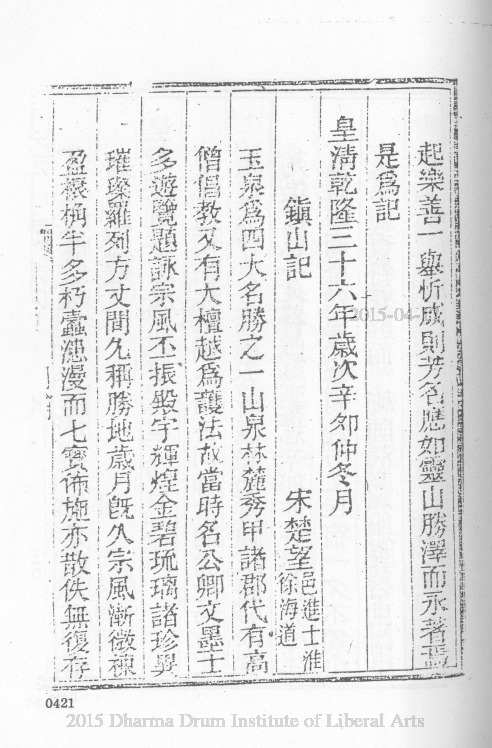 起樂善一舉忻成則芳名應如靈山勝澤而永著焉
是爲記
皇清乾隆三十六年歲次辛卯仲冬月
鎮山記 宋楚望邑進士淮徐海道
玉泉爲四大名勝之一山泉林麓秀甲諸郡代有高
僧倡教又有大檀越爲護法故當時名公卿文墨士
多遊覽題詠宗風丕振殿宇輝煌金碧琉璃諸珍異
璀璨羅列方丈間允稱勝地歲月旣久宗風漸微棟
盈榱桷半多朽蠹漶漫而七寶佈施亦散佚無復存
2015-04-
0421
2015 Dharma Drum Institute of Liberal Arts